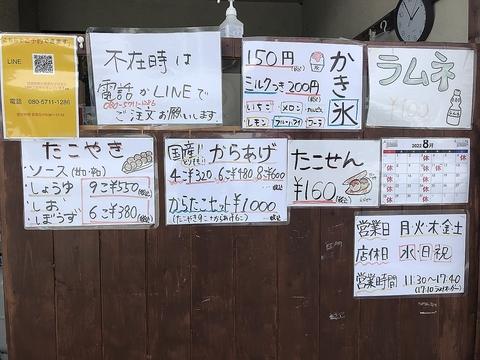 こちらでご予約できます。
LINE
電話 080-5711-1286
不在時は
電話かLINEで
080-5711-1286
ご注文お願いします。
150円(税込)
ミルクつき200円(税込)
かき氷
いちご
メロン
レモン
ブルーハワイ
コーラ
ラムネ
たこやき
ソース(甘・辛)
しょうゆ
しお
ぽんず
9コ¥550(税込)
6コ¥380(税込)
国産!! からあげ
4コ¥320 6コ¥480 8コ¥600
税込
からたこセット¥1000
(たこやき9こ+からあげ6こ)
税込
たこせん
¥160(税込)
2022 8月
休
営業日 月火・木金土
店休日 水・日・祝
営業時間 11:30〜17:40
(17:10ラストオーダー)